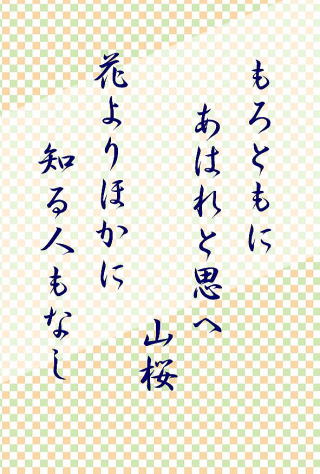 もろともに
あはれと思へ
山桜
花よりほかに
知る人もなし